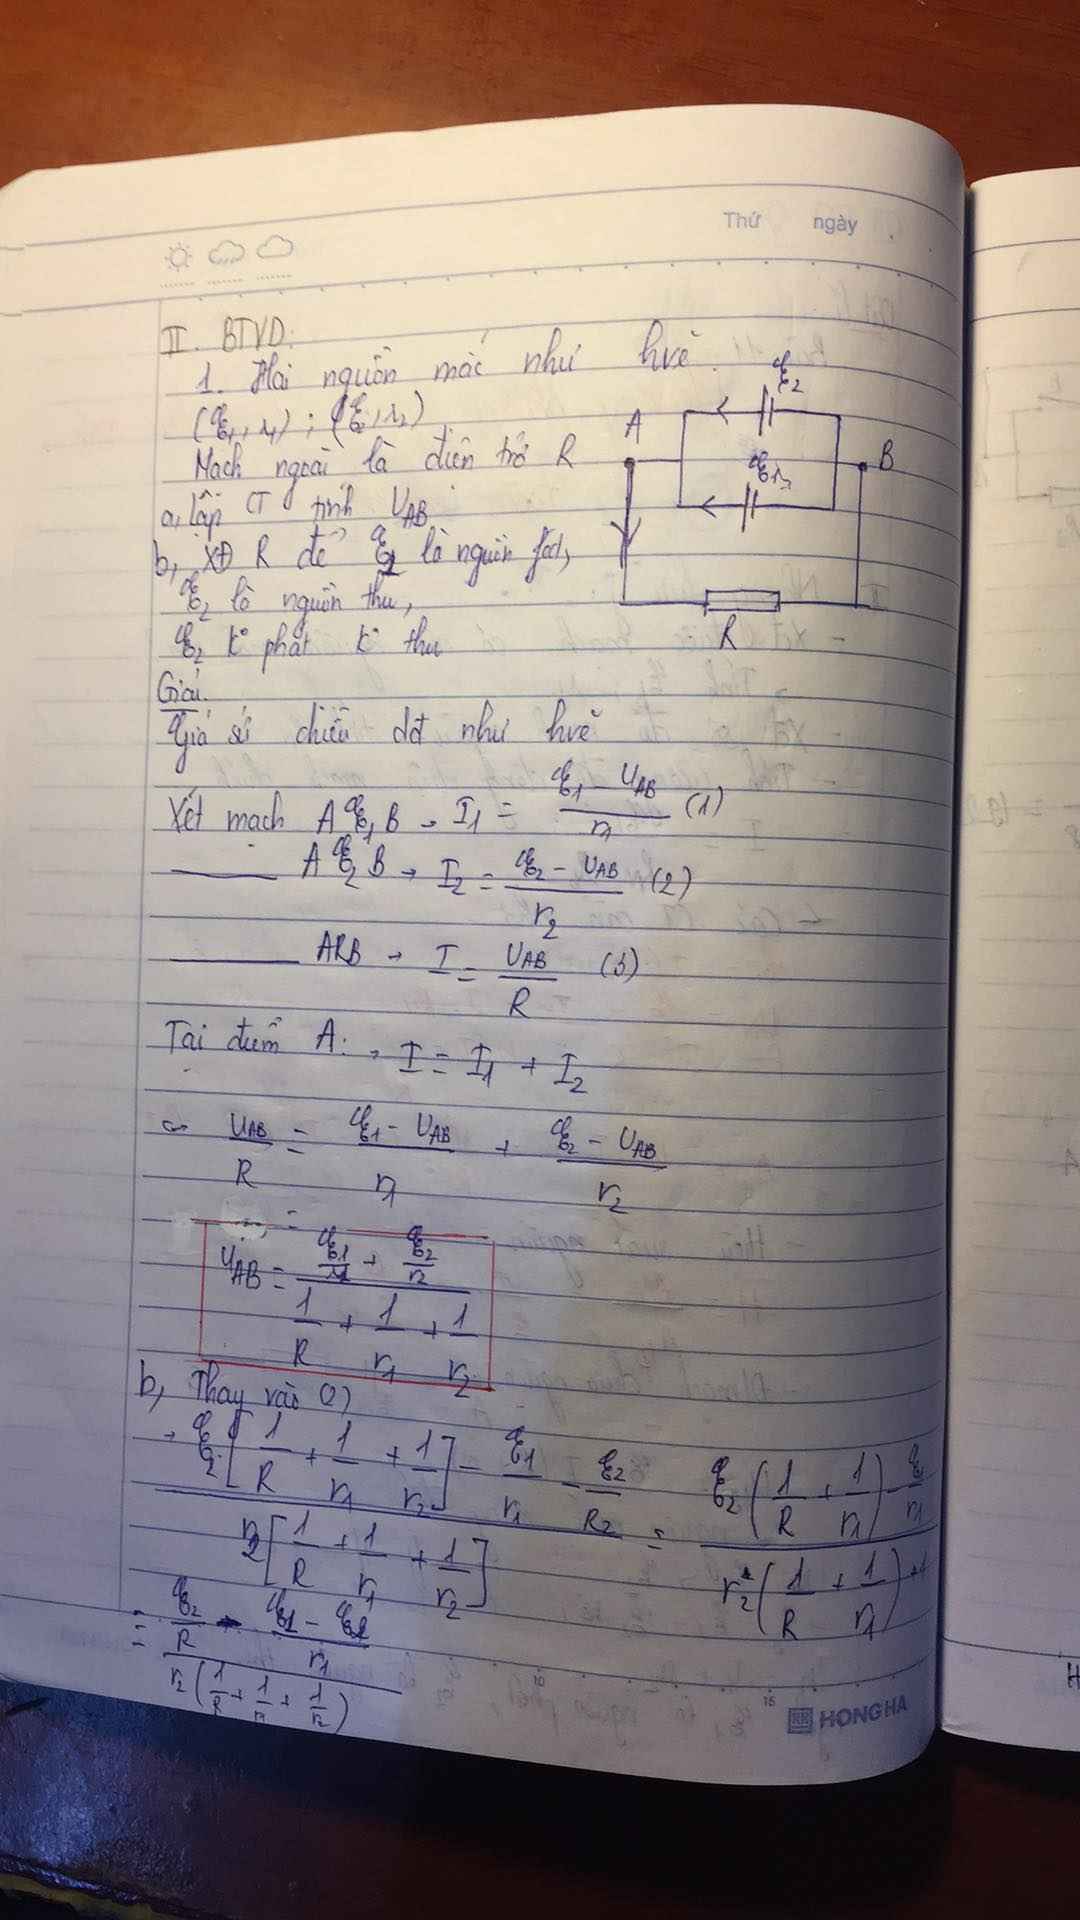 Thứ ngày
II. BTVD:
1. Hai nguồn mắc như hvẽ.
(ξ1, r1) ; (ξ2, r2)
Mạch ngoài là điện trở R
a, lập CT tính UAB
b, XĐ R để ξ2 là nguồn fát,
ξ2 là nguồn thu,
ξ2 k phát k thu
A
B
ξ2
R
Giải
Giả sử chiều dđ như hvẽ
Xét mạch A ξ1 B → I1 = (ξ1 - UAB)/r1 (1)
A ξ2 B → I2 = (ξ2 - UAB)/r2 (2)
ARB → I = UAB/R (3)
Tại điểm A: → I = I1 + I2
UAB/R = (ξ1 - UAB)/r1 + (ξ2 - UAB)/r2
UAB = (ξ1/r1 + ξ2/r2)/(1/R + 1/r1 + 1/r2)
b, Thay vào (2)
→ (ξ2[1/R + 1/r1 + 1/r2] - ξ1/r1 - ξ2/R2)/(r2[1/R + 1/r1 + 1/r2]) = (ξ2(1/R + 1/r1) - ξ1/r1)/(r2(1/R + 1/r1) + 1)
= (ξ2/R - (ξ1 - ξ2)/r1)/(r2(1/R + 1/r1 + 1/r2))
10
15
HONG HA